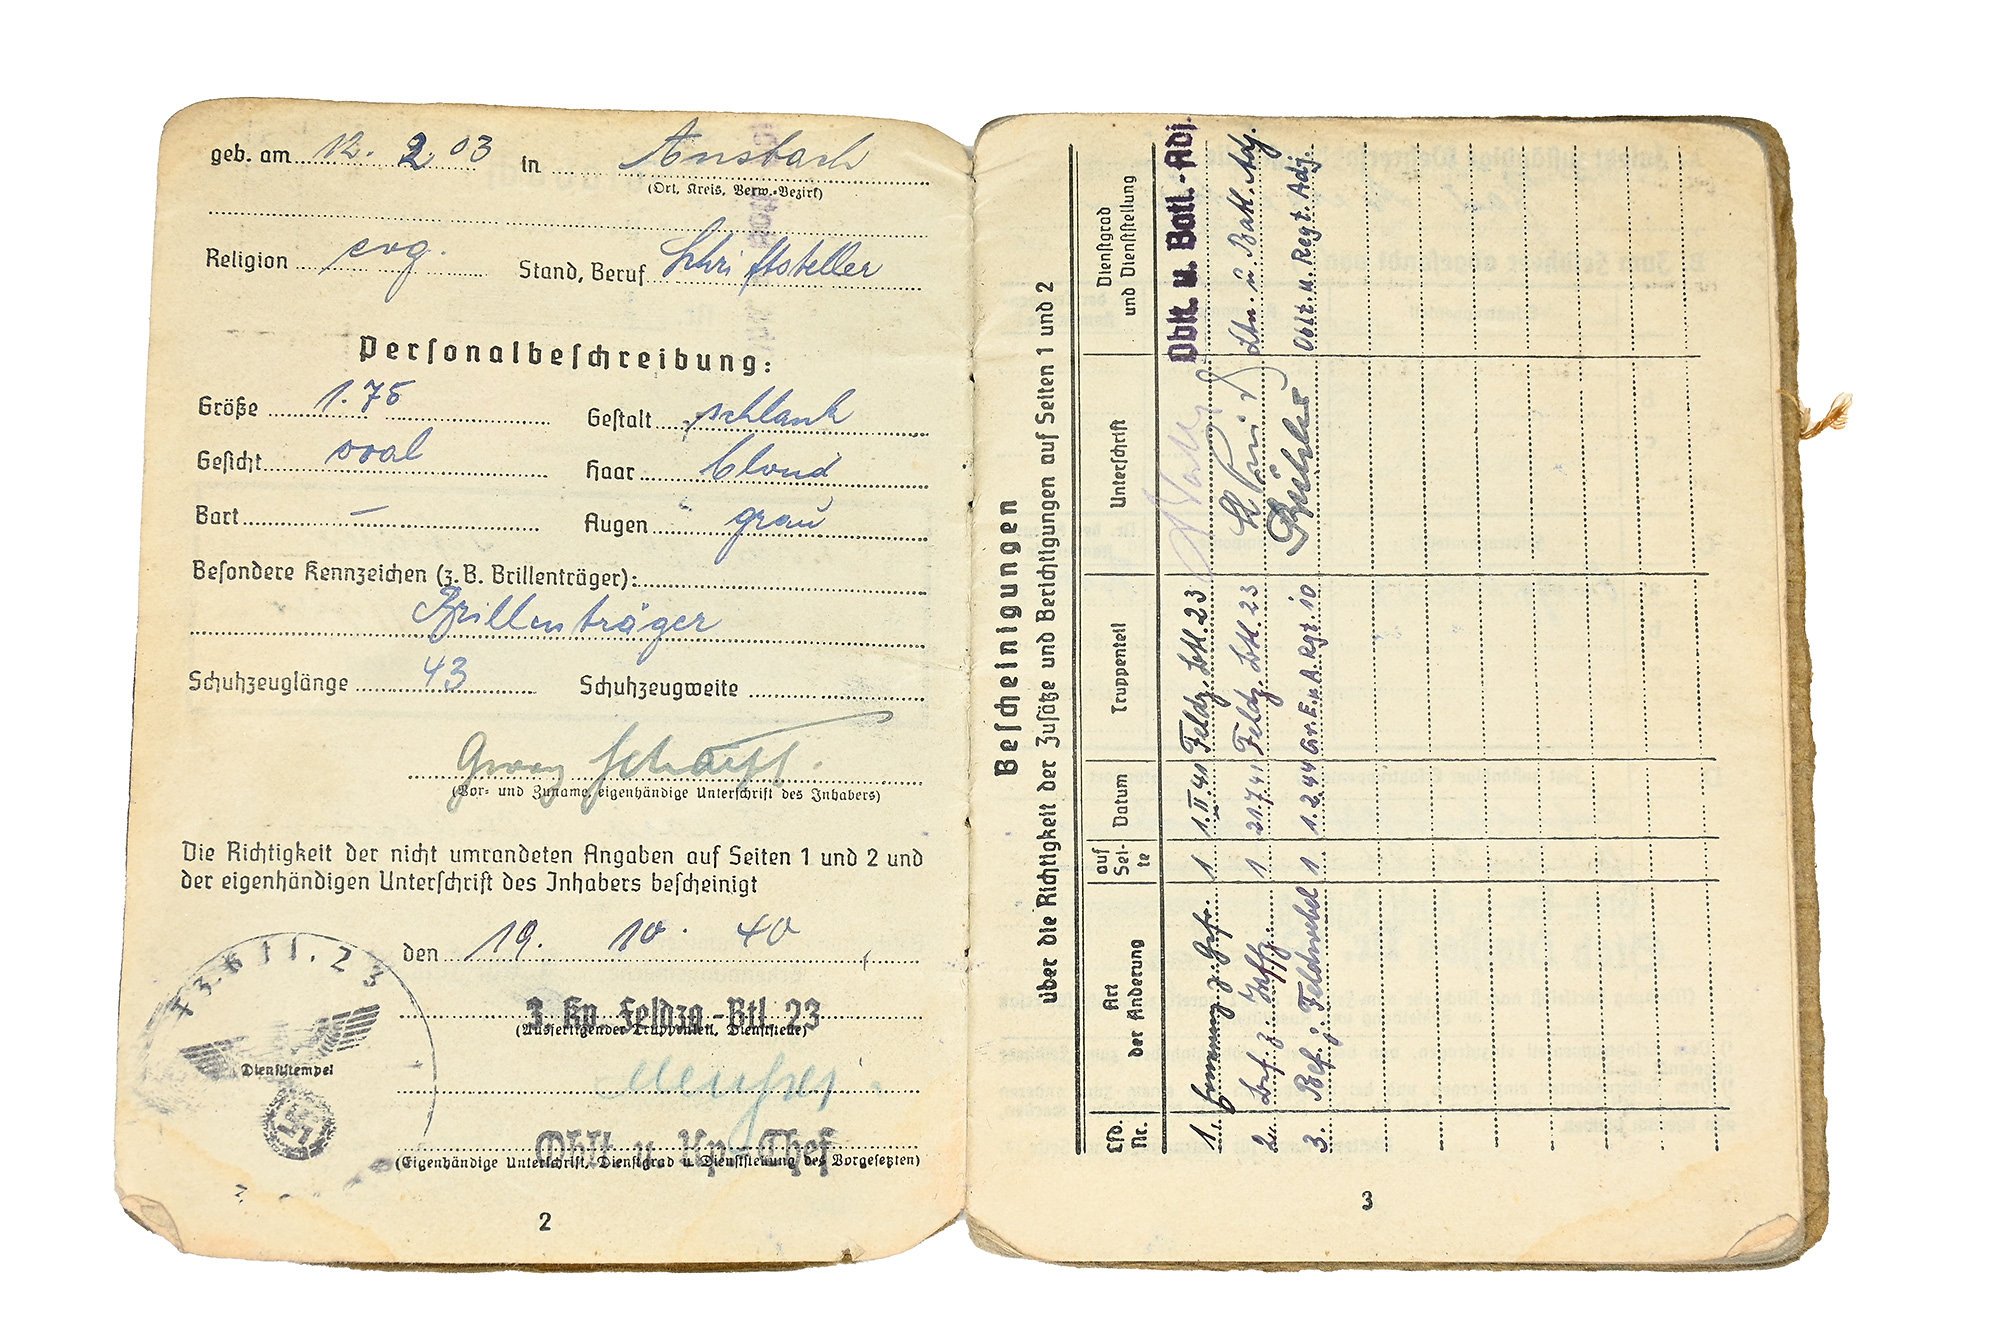 geb. am 12. 2. 03 in Ansbach
(Ort, Kreis, Verw.-Bezirk)
Religion evg. Stand, Beruf Schriftsteller
Personalbeschreibung:
Größe 1.75 Gestalt schlank
Gesicht oval Haar blond
Bart – Augen grau
Besondere Kennzeichen (z. B. Brillenträger):
Brillenträger
Schuhzeuglänge 43 Schuhzeugweite
Georg
(Vor- und Zuname, eigenhändige Unterschrift des Inhabers)
Die Richtigkeit der nicht umrandeten Angaben auf Seiten 1 und 2 und
der eigenhändigen Unterschrift des Inhabers bescheinigt
den 19. 10. 40
3 Kp Feldzg.-Btl 23
(Ausfertigender Truppenteil, Dienststelle)
Dienststempel
Oblt u Kp-Chef
(Eigenhändige Unterschrift, Dienstgrad u. Dienststellung des Vorgesetzten)
2
Bescheinigungen
über die Richtigkeit der Zusätze und Berichtigungen auf Seiten 1 und 2
Lfd. Nr. Art der Änderung auf Sei- te Datum Truppenteil Unterschrift Dienstgrad und Dienststellung
1. Ernennung z. Gefr. 1 1. II 41 Feldz. Btl. 23 Oblt. u. Batl.-Adj.
2. Bef. z. Uffz. 1 21.7.41 Feldz. Btl. 23 Ltn. u. Batl. Adj.
3. Bef. z. Feldwebel 1 1.2.44 Gr. E. u. A. Rgt. 10 Oblt. u. Regt. Adj.
3